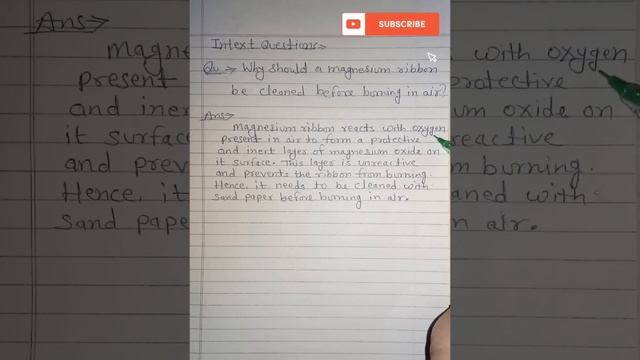 SUBSCRIBE
Intext Questions→
Qu → Why should a magnesium ribbon
be cleaned before burning in air?
Ans→
Magnesium ribbon reacts with oxygen
present in air to form a protective
and inert layer of magnesium oxide on
it surface. This layer is unreactive
and prevents the ribbon from burning.
Hence, it needs to be cleaned with
sand paper before burning in air.
Ans→
magne
present
and iner
it surfac
and prev
Hence, it
sand pape
with oxygen
rotective
um oxide on
reactive
burning.
aned with
n air.